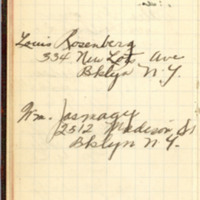 Louis Rosenberg
334 New Lots Ave
Bklyn N.Y.
Wm. Jasmagy
2312 Madison St
Bklyn N.Y.